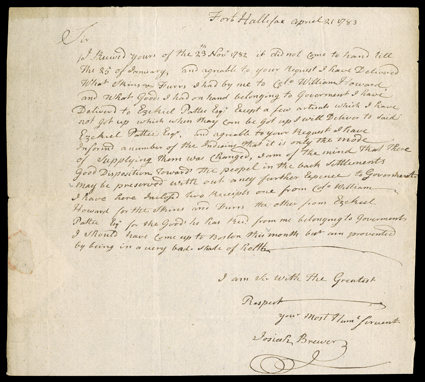 Fort Hallifax April 21 1783
Sir
I Received yours of the 23 Novr 1782 it did not come to hand till
The 25 of January, and agreable to your Request I have Delivered
What Skins or Furrs I had by me to Colo William Howard
and What Goods I had on hand belonging to Goverment I have
Deliverd to Ezekiel Pattee Esqr Except a few articels Which I have
not got up which when they can be Got up I will Deliver to said
Ezekiel Pattee Esqr. and agreable to your Request I have
Informd a number of the Indians that it is only the mode
of Supplying them was Changed, I am of the mind that there
Good Disposition toward the Peopel in the back Settlements
may be preserved with out any further Expence to Goverment
I have here Inclosed two Receipts one from Colo William
Howard for the Skins and Furrs the other from Ezekiel
Pattee Esqr for the Goods he has Recd from me belonging to Goverment
I should have come up to Boston this month but am prevented
by being in a very bad State of helth
I am Sir with the Greatest
Respect
your most Huml Servant
Josiah Brewer